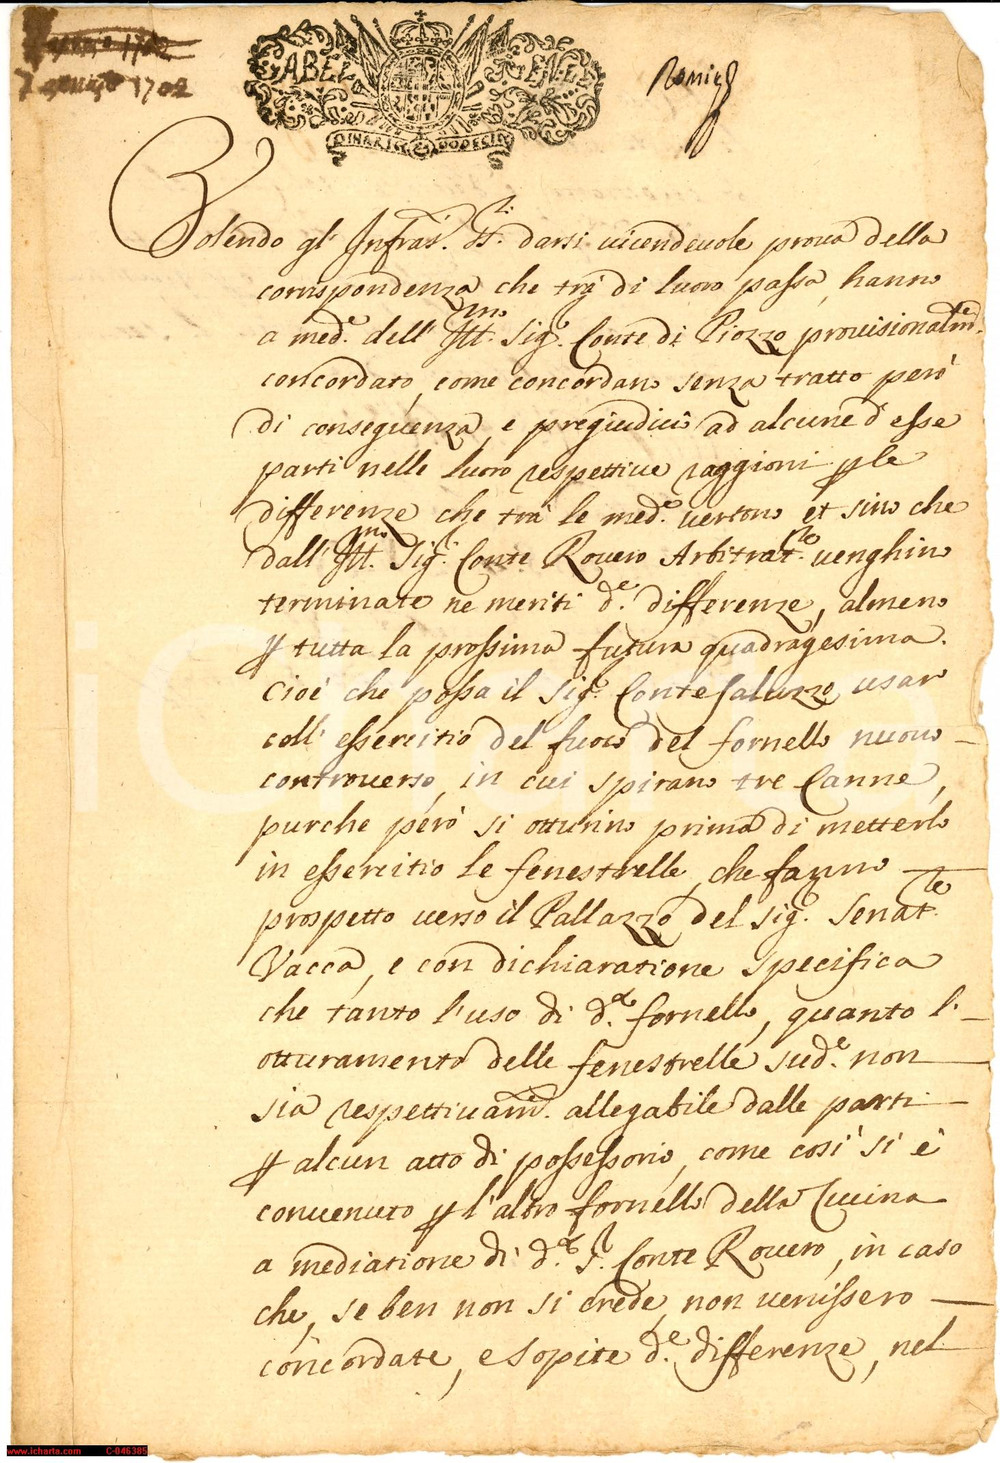 1702
7 1702
GABEL GENLE
DINARII DODECI
Volendo gl' Infras.ti SS.ri darsi vicendevole prova della
corrispondenza che trà di luoro passa, hanno
a med.e dell' Ill.mo Sig.r Conte di Piozzo provisionalm.te
concordato, come concordano senza tratto però
di conseguenza, e pregiudicio ad alcune d'esse
parti nelle luoro respettive raggioni p le
differenze che trà le med.e vertono et sino che
dall' Ill.mo Sig.r Conte Rovero Arbitrat.re venghino
terminate ne meriti d.e differenze, almeno
p tutta la prossima futura quadragesima.
Cioè che possa il Sig.r Conte Saluzzo usar
coll' essercitio del fuoco del fornello nuovo
controverso, in cui spirano tre Canne,
purche però si otturino prima di metterlo
in essercitio le fenestrelle, che fanno
prospetto verso il Pallazzo del Sig.r Senat.re
Vacca, e con dichiaratione specifica
che tanto l'uso di d.o fornello, quanto l'
otturamento delle fenestrelle sud.e non
sia respettivam.te allegabile dalle parti
p alcun atto di possessorio, come così si è
convenuto p l'altro fornello della Cucina
a mediatione di d.o S.r Conte Rovero, in caso
che, se ben non si crede, non venissero
concordate, e sopite d.e differenze, nel
www.icharta.com C-046385